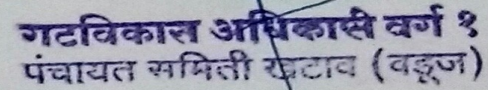 गटविकास अधिकारी वर्ग १
पंचायत समिती खटाव (वडूज)